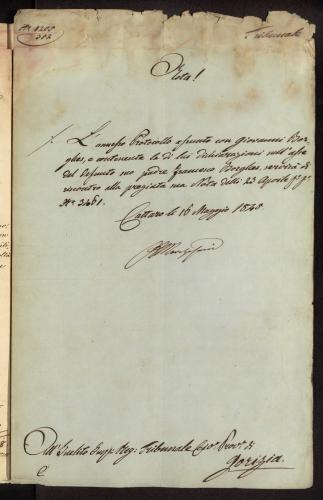 Nota!
L'annesso Protocollo assunto con Giovanni Bor-
ghes, e contenente le di lui dichiarazioni sull'
del defunto suo padre Francesco Borghes, servirà di
riscontro alla pregiata sua Nota delli 23 Aprile
N° 3461.
Cattaro li 16 Maggio 1845
All' Inclito Imp. Reg. Tribunale Civ. Prov. di
Gorizia.